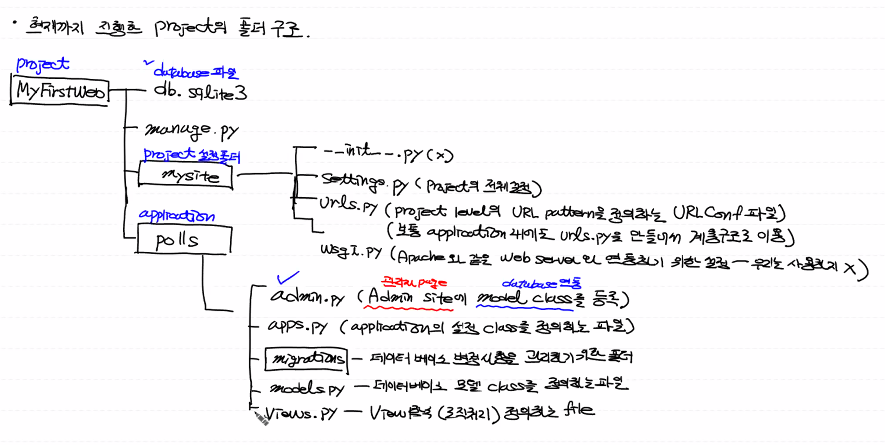 • 현재까지 진행한 project의 폴더 구조.
project
MyFirstWeb
database 파일
db.sqlite3
manage.py
project 설정폴더
mysite
__init__.py (x)
settings.py (project의 전체설정)
urls.py (project level의 URL pattern을 정의하는 URLConf 파일)
(보통 application 내에도 urls.py을 만들어서 계층구조로 이용)
wsgi.py (Apache와 같은 web server와 연동하기 위한 설정 - 우리는 사용하지 x)
application
polls
관리자page
database 연동
admin.py (Admin site에 model class를 등록)
apps.py (application의 설정 class를 정의하는 파일)
migrations - 데이터베이스 변경사항을 관리하기 위한 폴더
models.py - 데이터베이스 모델 class를 정의하는 파일
views.py - View함수 (로직처리) 정의하는 file